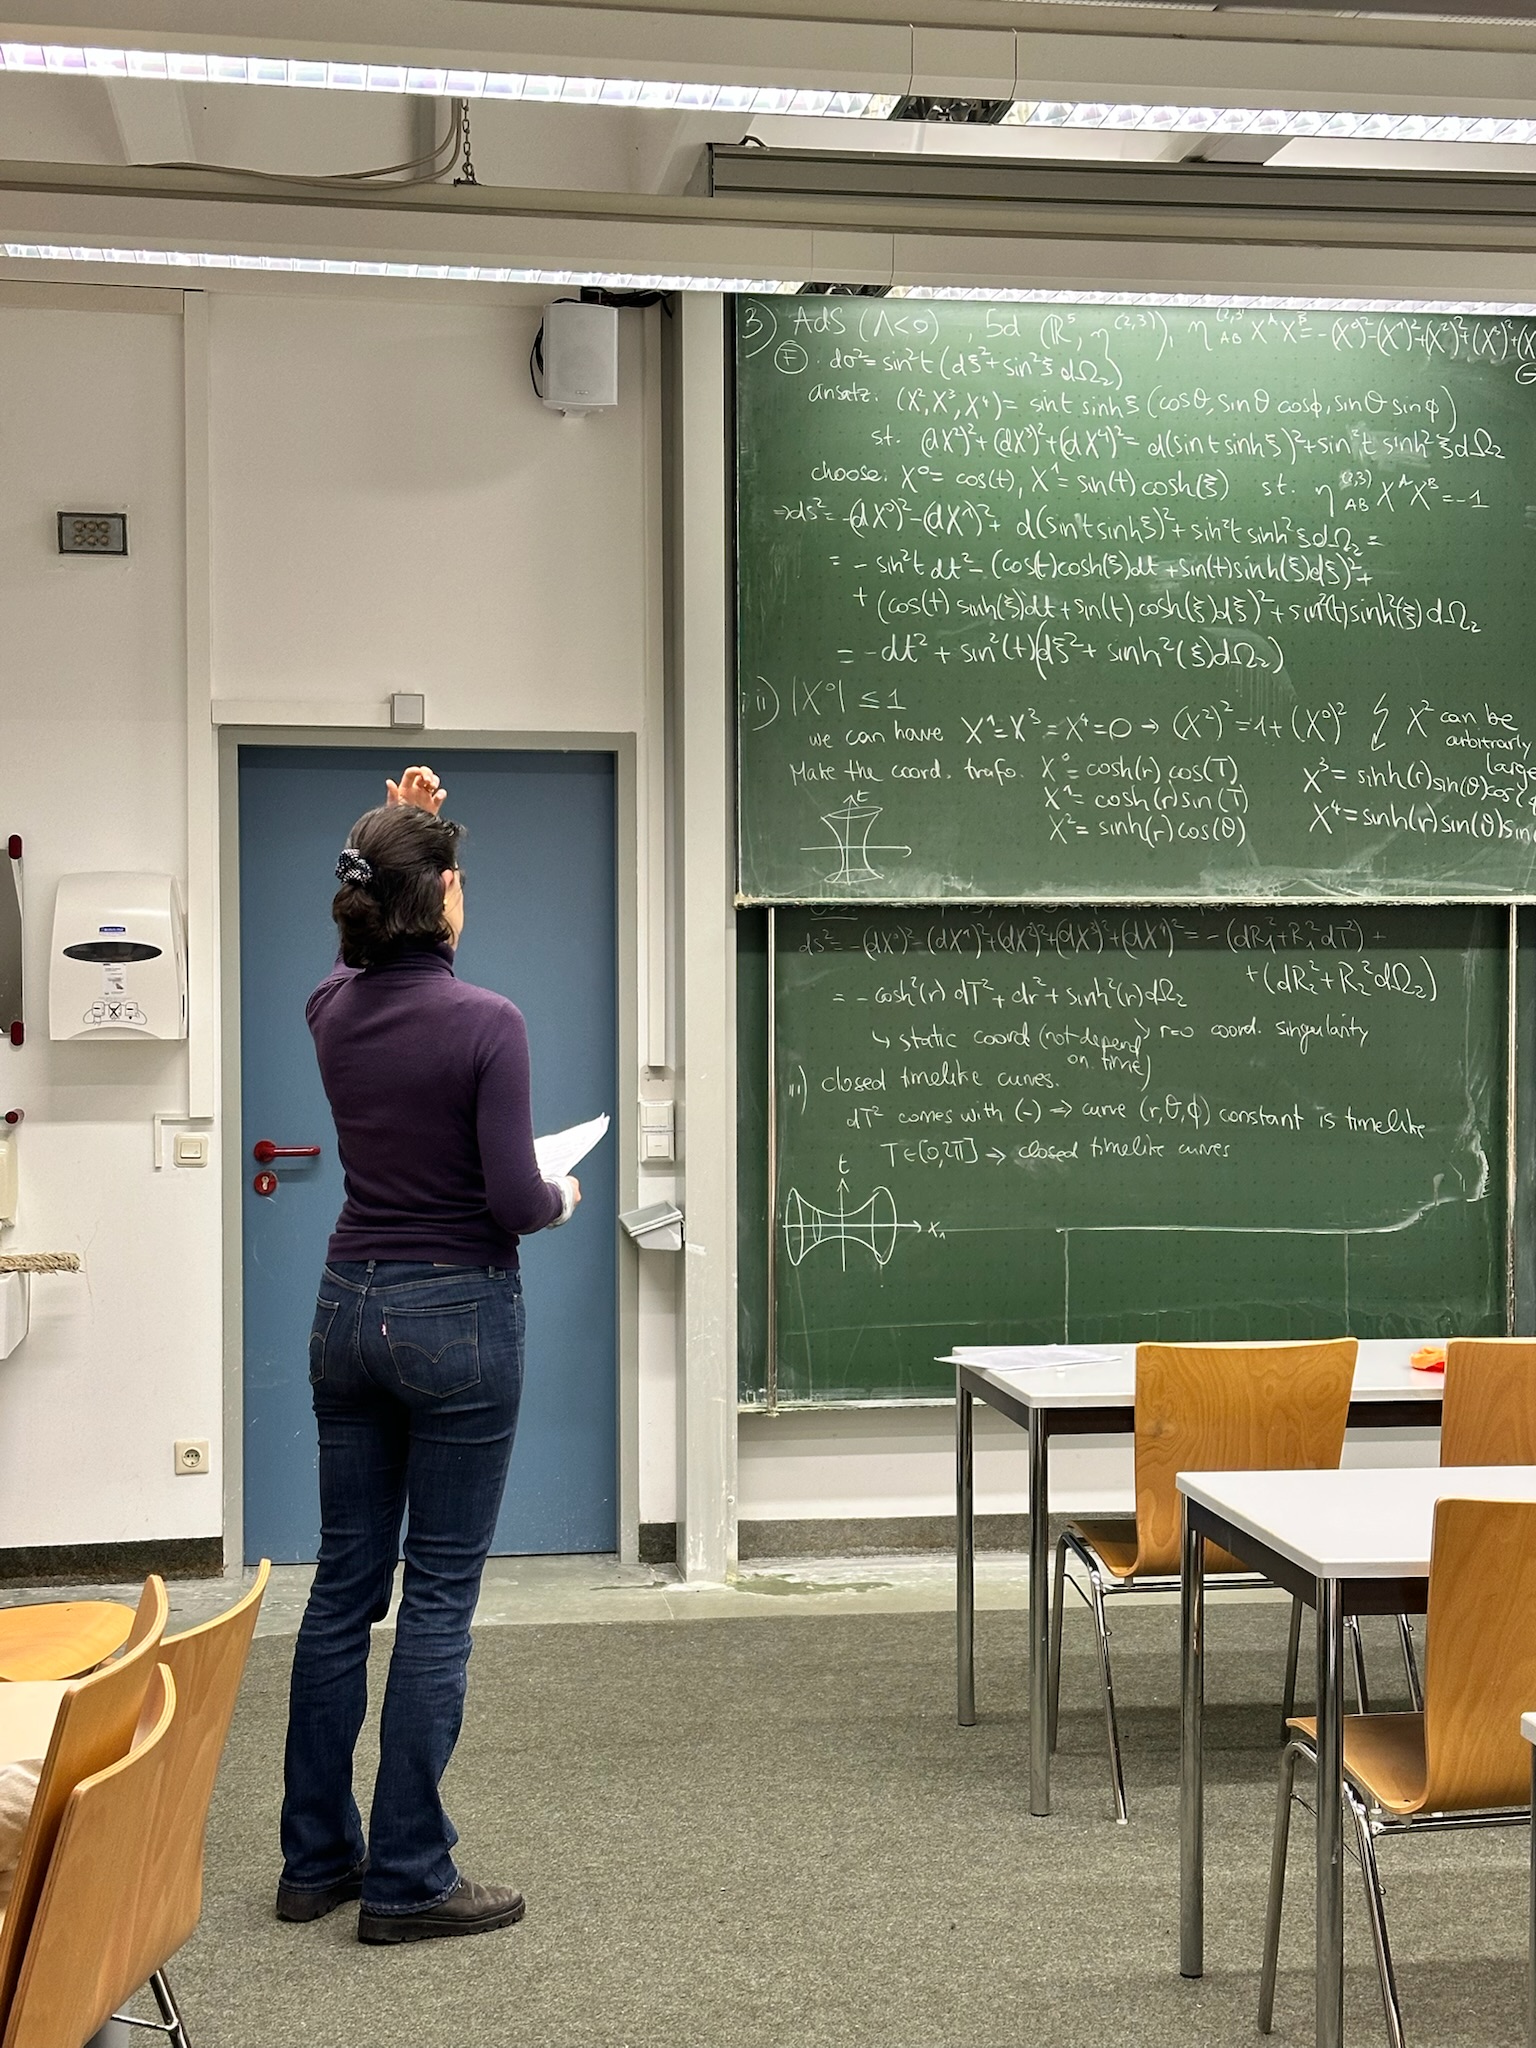 3) AdS (Λ<0), 5d (ℝ⁵, η^(2,3)), η_AB^(2,3) X^A X^B = -(X⁰)²-(X¹)²+(X²)²+(X³)²+(X
Ⓕ · dσ² = sin²t (dξ²+sin²ξ dΩ₂)
ansatz: (X²,X³,X⁴) = sint sinhξ (cosθ, sinθ cosφ, sinθ sinφ)
st. (dX²)²+(dX³)²+(dX⁴)² = d(sint sinhξ)²+sin²t sinh²ξ dΩ₂
choose: X⁰ = cos(t), X¹ = sin(t) cosh(ξ) st. η_AB^(2,3) X^A X^B = -1
⇒ds² = -(dX⁰)²-(dX¹)²+ d(sint sinhξ)²+sin²t sinh²ξ dΩ₂ =
= - sin²t dt² - (cos(t)cosh(ξ)dt + sin(t)sinh(ξ)dξ)²+
+ (cos(t) sinh(ξ)dt + sin(t) cosh(ξ)dξ)² + sin²(t)sinh²(ξ) dΩ₂
= -dt² + sin²(t)(dξ² + sinh²(ξ)dΩ₂)
ii) |X⁰| ≤ 1
we can have X¹=X³=X⁴=0 → (X²)² = 1+(X⁰)² ↯ X² can be
arbitrarly
large
Make the coord. trafo. X⁰ = cosh(r) cos(T)
X¹ = cosh(r) sin(T)
X² = sinh(r) cos(θ)
X³ = sinh(r) sin(θ) cos(
X⁴ = sinh(r) sin(θ) sin
t
ds² = -(dX⁰)²-(dX¹)²+(dX²)²+(dX³)²+(dX⁴)² = -(dR₁²+R₁²dT²) +
+(dR₂²+R₂²dΩ₂)
= -cosh²(r) dT² + dr² + sinh²(r) dΩ₂
↳ static coord (not depend on time) r=0 coord. singularity
iii) closed timelike curves.
dT² comes with (-) ⇒ curve (r,θ,φ) constant is timelike
T∈[0,2π] → closed timelike curves
t
x₁